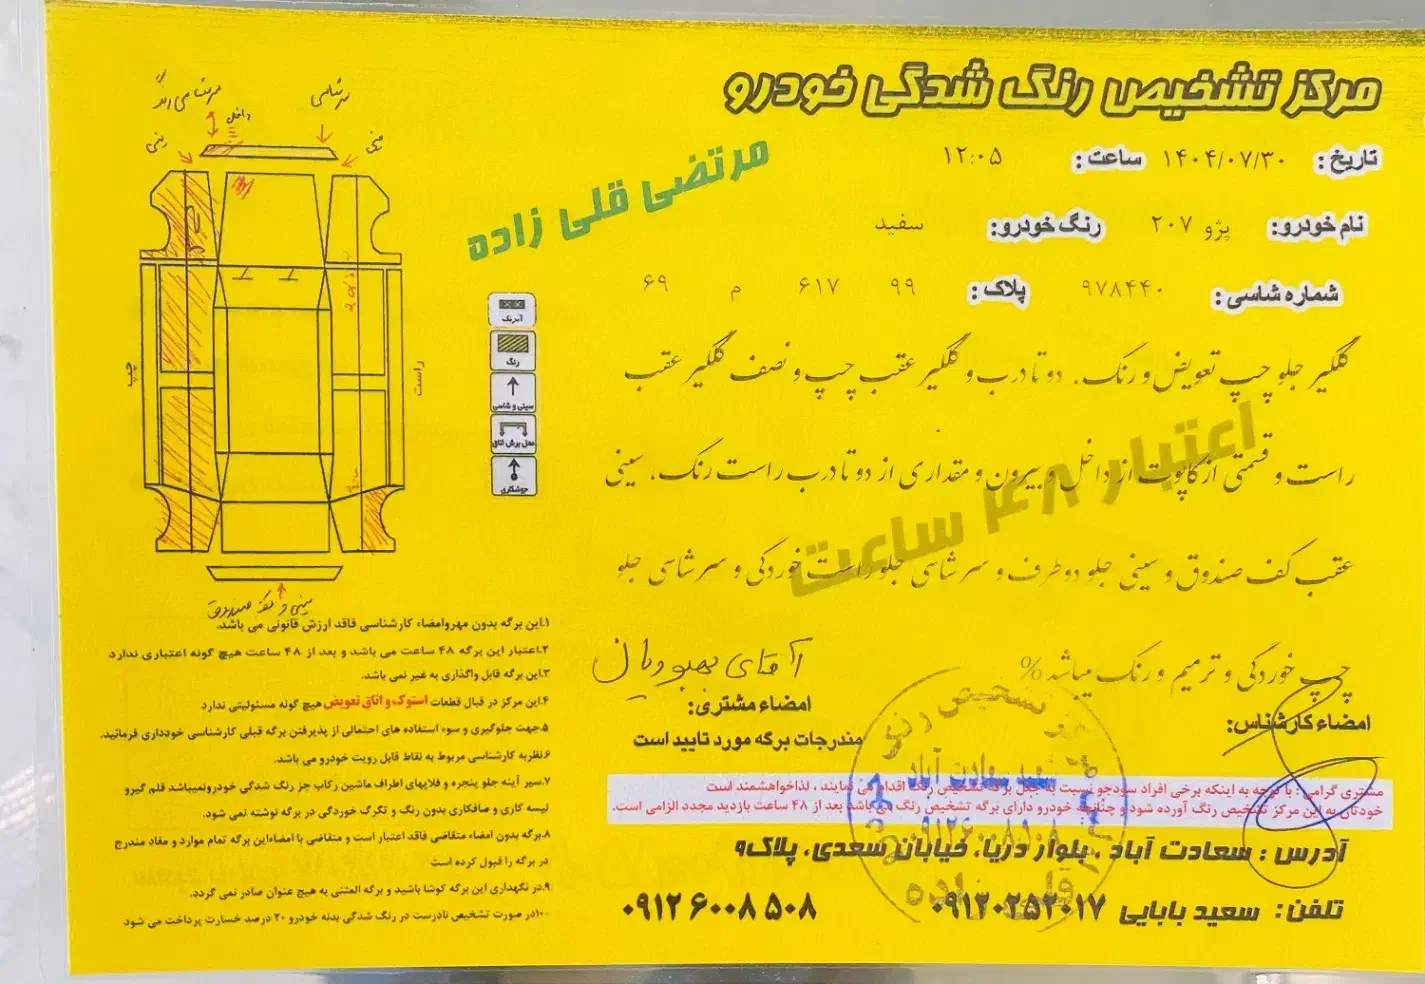 مرکز تشخیص رنگ شدگی خودرو
تاریخ: ۱۴۰۴/۰۷/۳۰ ساعت: ۱۲:۰۵
مرتضی قلی زاده
نام خودرو: پژو ۲۰۷ رنگ خودرو: سفید
شماره شاسی: ۹۷۸۴۴۰ پلاک: ۹۹ ۶۱۷ م ۶۹
گلگیر جلو چپ تعویض و رنگ. دو تا درب و گلگیر عقب چپ و نصف گلگیر عقب
راست و قسمتی از کاپوت از داخل و بیرون و مقداری از دو تا درب راست رنگ، سینی
عقب کف صندوق و سینی جلو دو طرف و سر شاسی جلو راست خوردگی و سر شاسی جلو
چپ خوردگی و ترمیم و رنگ میباشد%
اعتبار ۴۸ ساعت
سرشاسی
داخل
سینی
سینی
چپ
راست
سینی و کف صندوق
آبرنگ
رنگ
سینی و شاسی
محل برش اتاق
جوشکاری
امضاء کارشناس:
آقای بهبودیان
امضاء مشتری:
مندرجات برگه مورد تایید است
۱.این برگه بدون مهر و امضاء کارشناسی فاقد ارزش قانونی می باشد.
۲.اعتبار این برگه ۴۸ ساعت می باشد و بعد از ۴۸ ساعت هیچ گونه اعتباری ندارد
۳.این برگه قابل واگذاری به غیر نمی باشد.
۴.این مرکز در قبال قطعات استوک و اتاق تعویض هیچ گونه مسئولیتی ندارد
۵.جهت جلوگیری و سوء استفاده های احتمالی از پذیرفتن برگه قبلی کارشناسی خودداری فرمائید.
۶.نظریه کارشناسی مربوط به نقاط قابل رویت خودرو می باشد.
۷.سپر آینه جلو پنجره و فلاپهای اطراف ماشین رکاب جز رنگ شدگی خودرو نمیباشد قلم گیرو
لیسه کاری و صافکاری بدون رنگ و تگرگ خوردگی در برگه نوشته نمی شود.
۸.برگه بدون امضاء متقاضی فاقد اعتبار است و متقاضی با امضاء این برگه تمام موارد و مفاد مندرج
در برگه را قبول کرده است
۹.در نگهداری این برگه کوشا باشید و برگه المثنی به هیچ عنوان صادر نمی گردد.
۱۰-در صورت تشخیص نادرست در رنگ شدگی بدنه خودرو ۲۰ درصد خسارت پرداخت می شود
مشتری گرامی : با توجه به اینکه برخی افراد سودجو نسبت به جعل برگه تشخیص رنگ اقدام می نمایند ، لذا خواهشمند است
خودتان به این مرکز تشخیص رنگ آورده شود و چنانچه خودرو دارای برگه تشخیص رنگ می باشد بعد از ۴۸ ساعت بازدید مجدد الزامی است.
آدرس : سعادت آباد ، بلوار دریا، خیابان سعدی، پلاک۹
تلفن: سعید بابایی ۰۹۱۲۰۲۵۲۰۱۷ ۰۹۱۲۶۰۰۸۵۰۸